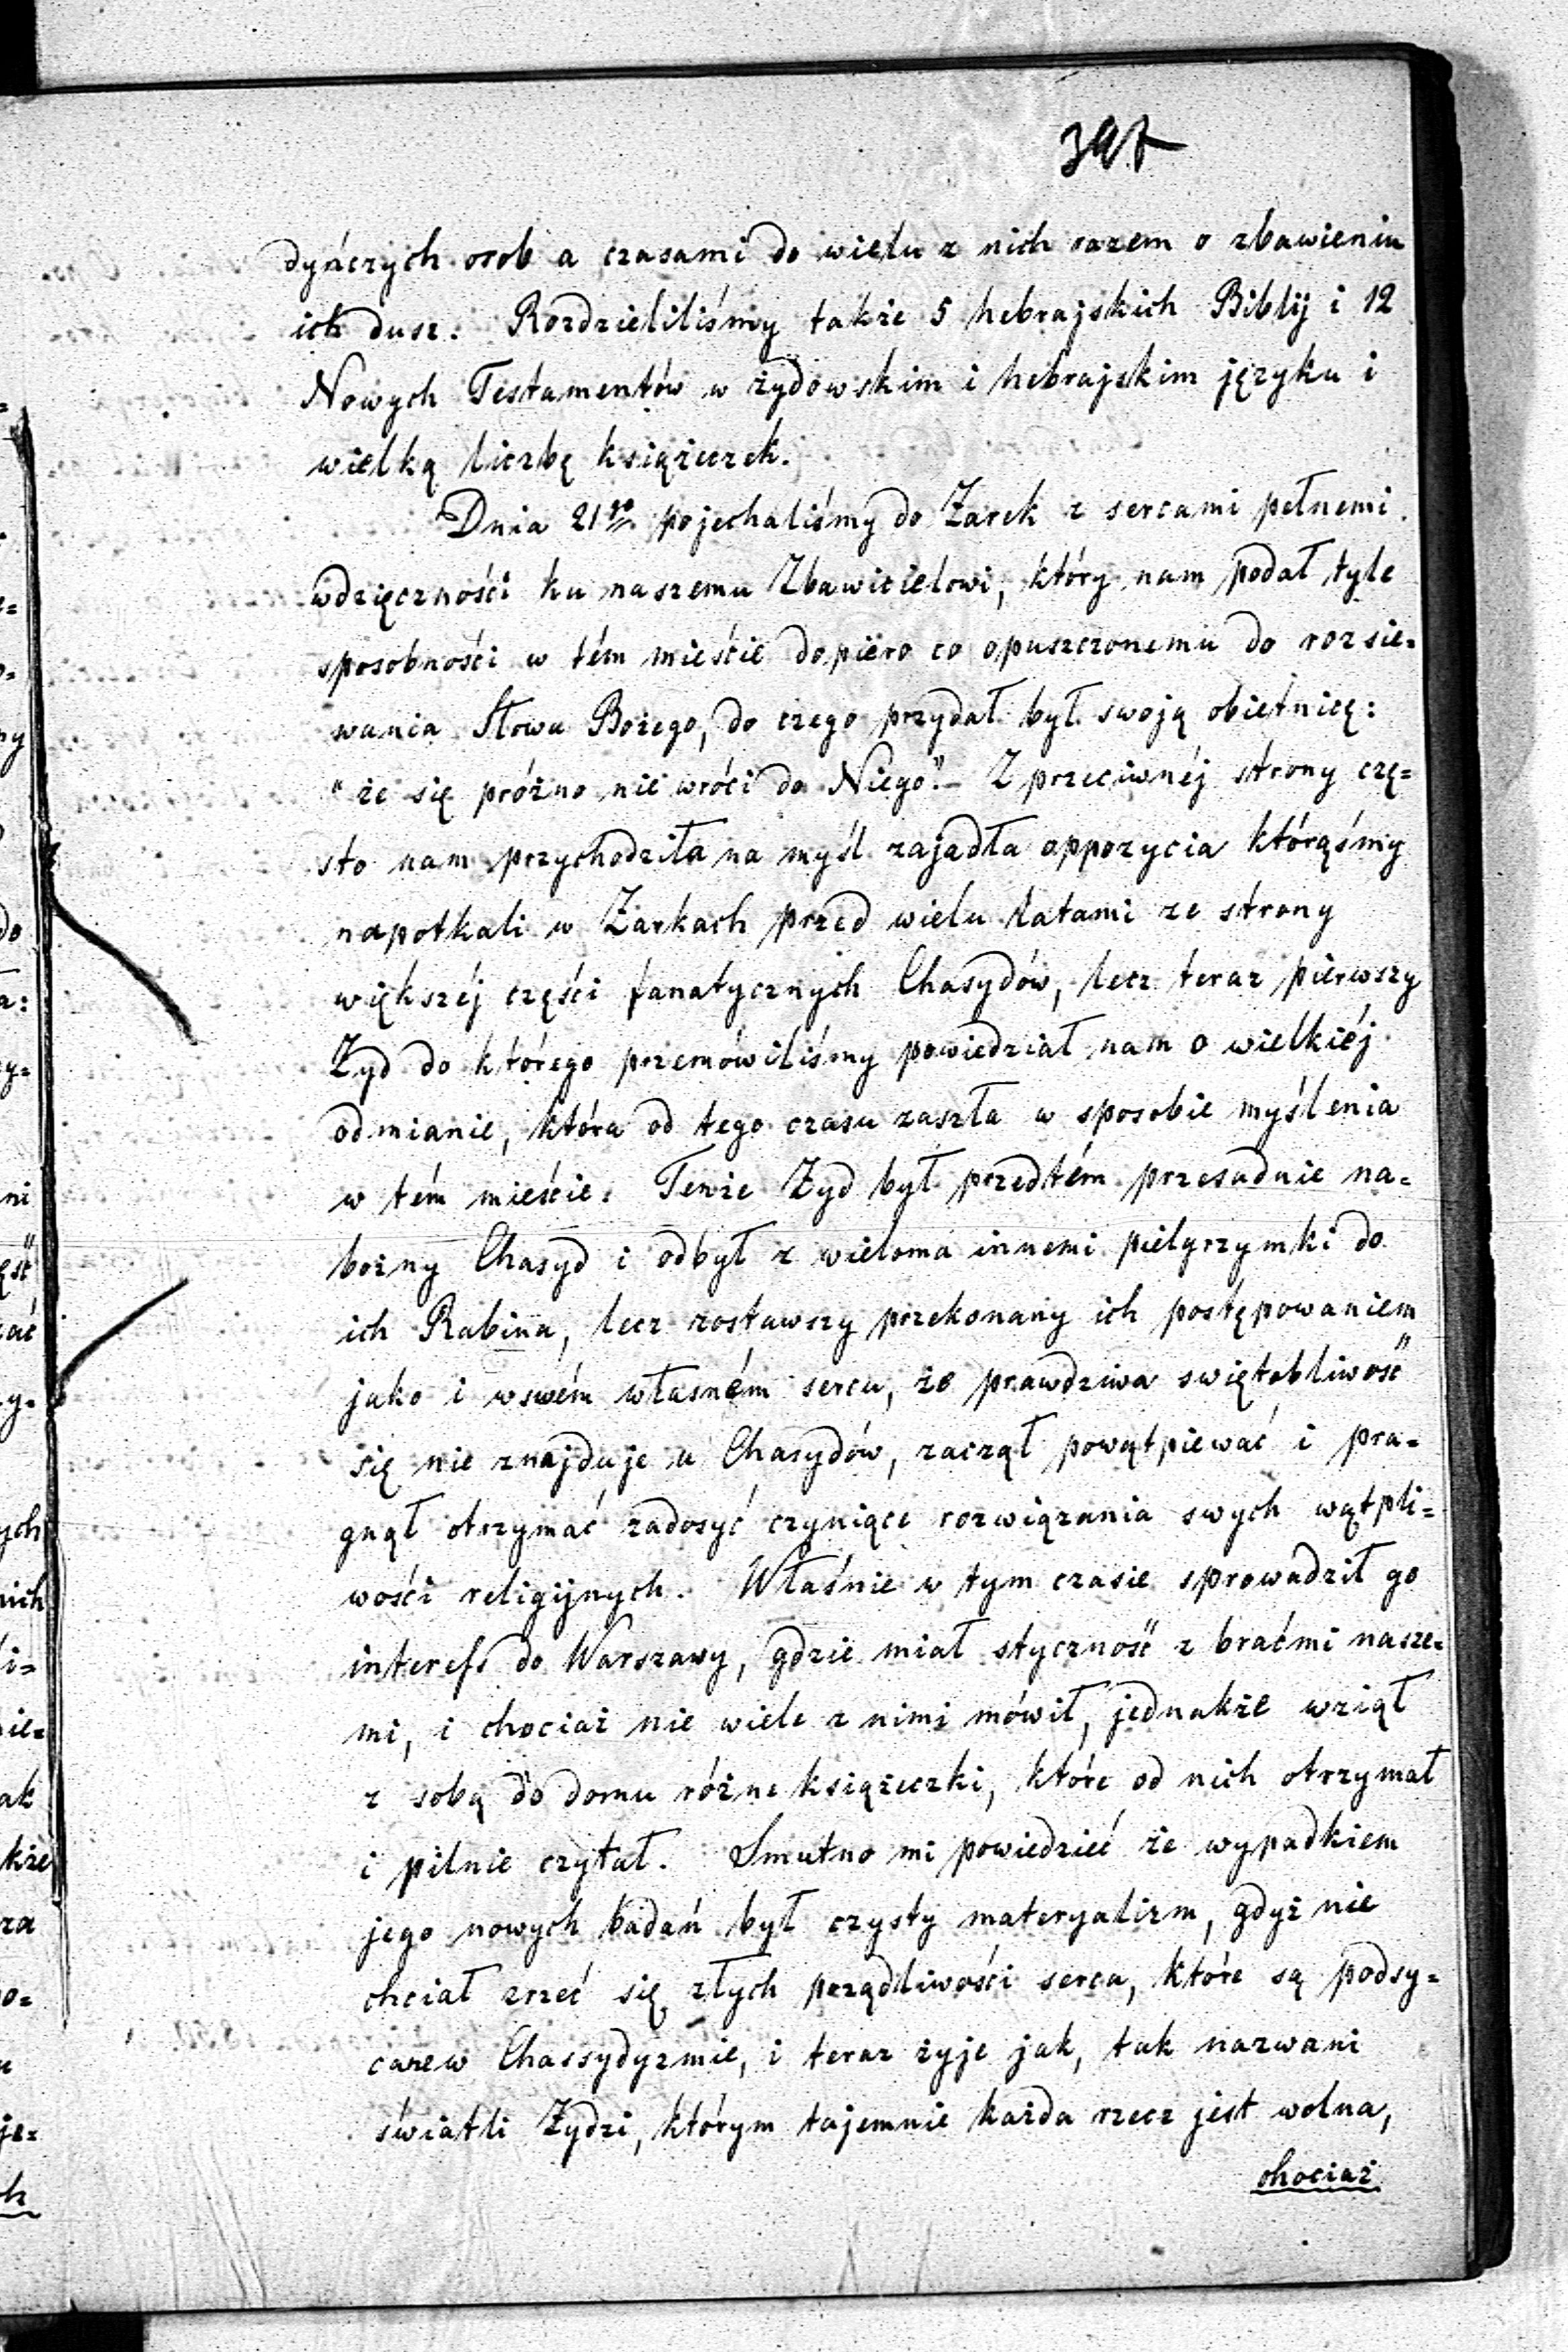 397
dyńczych osob a czasami do wielu z nich razem o zbawieniu
ich dusz. Rozdzieliliśmy także 5 hebrajskich Biblij i 12
Nowych Testamentów w żydowskim i hebrajskim języku i
wielką liczbę książeczek.
Dnia 21go pojechaliśmy do Żarek z sercami pełnemi
wdzięczności ku naszemu Zbawicielowi, który nam podał tyle
sposobności w tém mieście dopiero co opuszczonemu do rozsie=
wania Słowa Bożego, do czego przydał był swoją obietnicę:
"że się próżno nie wróci do Niego". – Z przeciwnéj strony czę=
sto nam przychodziła na myśl zajadła oppozycia którąśmy
napotkali w Żarkach przed wielu latami ze strony
większéj części fanatycznych Chasydów, lecz teraz pierwszy
Żyd do którego przemówiliśmy powiedział nam o wielkiéj
odmianie, która od tego czasu zaszła w sposobie myślenia
w tém mieście. Tenże Żyd był przedtém przesadnie na=
bożny Chasyd i odbył z wieloma innemi pielgrzymki do
ich Rabina, lecz zostawszy przekonany ich postępowaniem
jako i w swém własném sercu, że prawdziwa swiętobliwość
się nie znajduje u Chasydów, zaczął powątpiewać i pra=
gnął otrzymać zadosyć czyniące rozwiązania swych wątpli=
wości religijnych. Właśnie w tym czasie sprowadził go
interefs do Warszawy, gdzie miał styczność z braćmi nasze=
mi, i chociaż nie wiele z nimi mówił, jednakże wziął
z sobą do domu różne książeczki, które od nich otrzymał
i pilnie czytał. Smutno mi powiedzieć że wypadkiem
jego nowych badań był czysty materyalizm, gdyż nie
chciał zrzeć się złych pożądliwości serca, które są podsy=
cane w Chassydyzmie, i teraz żyje jak, tak nazwani
światli Żydzi, którym tajemnie każda rzecz jest wolna,
chociaż